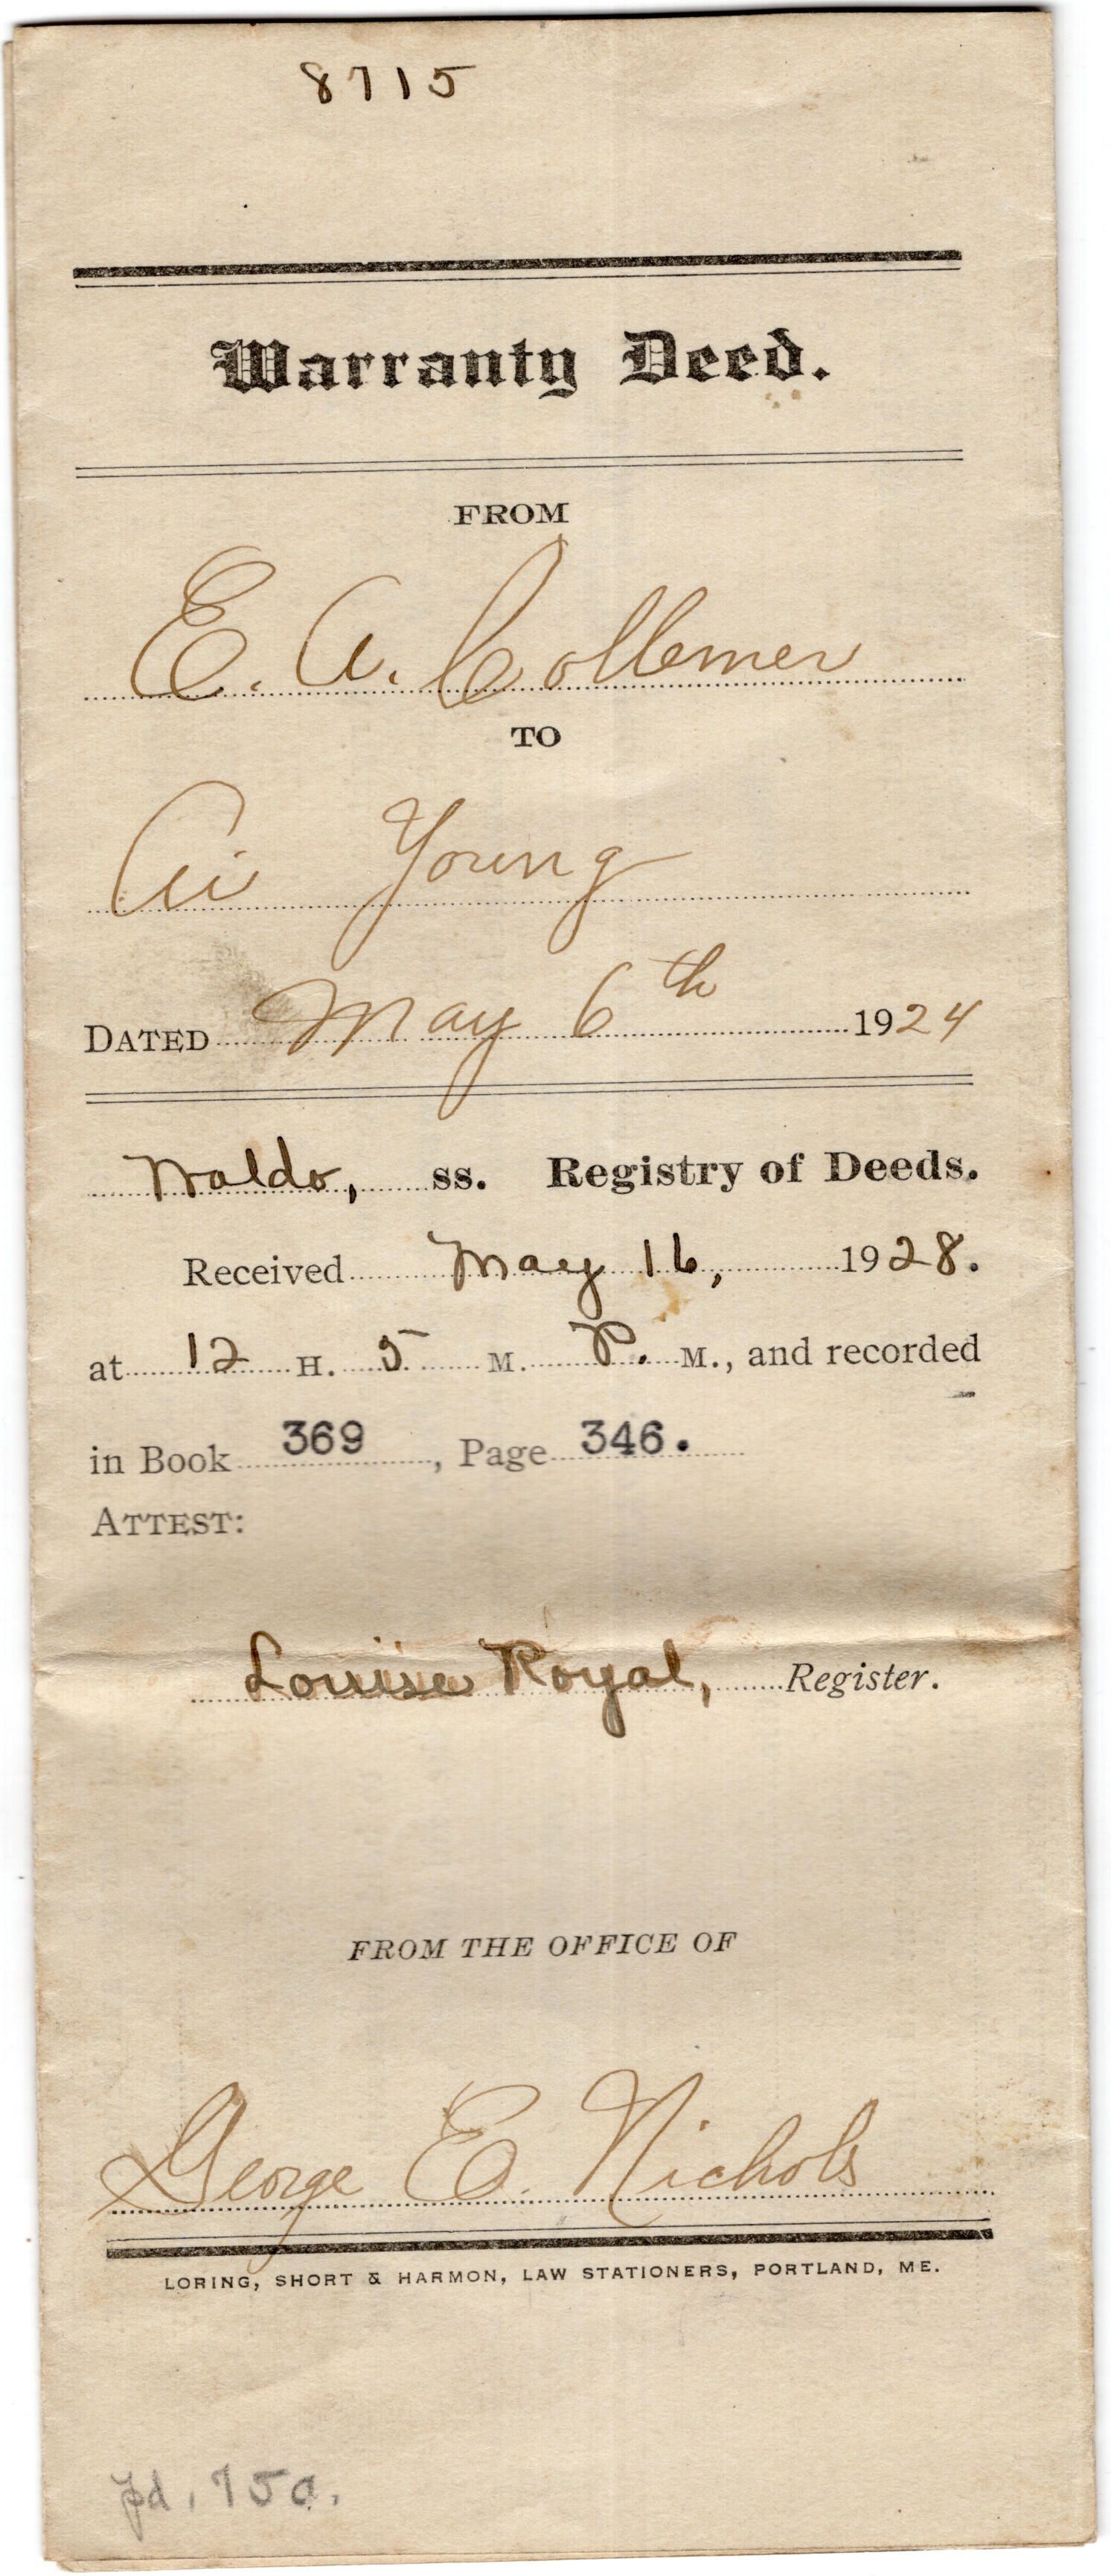 8715
Warranty Deed.
FROM
E. A. Collemer
TO
Ai Young
DATED May 6th 1924
Waldo, ss. Registry of Deeds.
Received May 16, 1928.
at 12 H. 5 M. P. M., and recorded
in Book 369, Page 346.
ATTEST:
Louise Royal, Register.
FROM THE OFFICE OF
George E. Nichols
LORING, SHORT & HARMON, LAW STATIONERS, PORTLAND, ME.
pd. 75c.